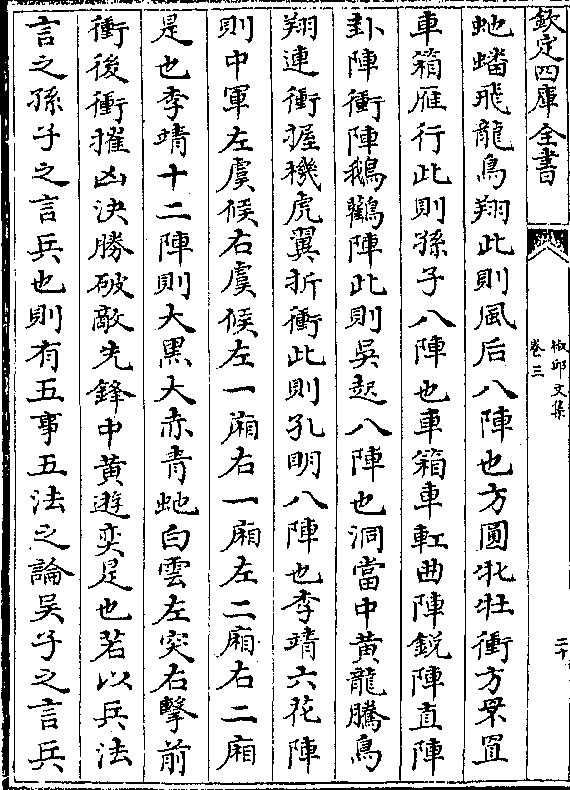 欽定四庫全書
椒邱文集
卷三
二十
虵蟠飛龍鳥翔此則風后八陣也方圓牝牡衝方罘罝
車箱雁行此則孫子八陣也車箱車軖曲陣鋭陣直陣
卦陣衝陣鵝鸛陣此則吳起八陣也洞當中黄龍騰鳥
翔連衝握機虎翼折衝此則孔明八陣也李靖六花陣
則中軍左虞候右虞候左一廂右一廂左二廂右二廂
是也李靖十二陣則大黒大赤青虵白雲左突右擊前
衝後衝摧凶決勝破敵先鋒中黄遊奕是也若以兵法
言之孫子之言兵也則有五事五法之論吳子之言兵